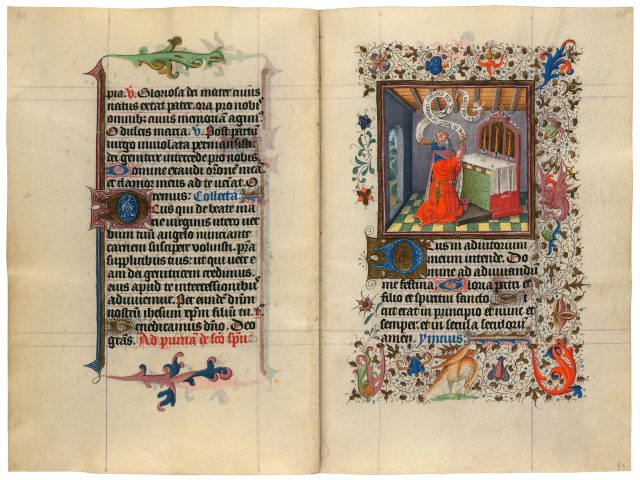 pia. V. Gloriosa dei mater cuius
natus extat pater. ora pro nobis
omnibus cuius memoriam agim
O dulcis maria. V. Post partū
uirgo inuiolata permansisti
dei genitrix intercede pro nobis
Domine exaudi oroñe meā
et clamor meus ad te ueiat. O
remus: Collecta.
Deus qui de beate marie
virginis utero ver
bum tuū angelo nunciante
carnem suscipere voluisti. prā
supplicibus tuis: ut qui vere e
am dei genitricem credimus:
eius apud te intercessionibus
adiuuemur. Per eundē dūm
nostrū ihesum xpm filiū tu.
Benedicamus dño. Deo
grās. Ad prima de sco spū.
Deus in adiutorium
meum intende. Do
mine ad adiuuandū
me festina Gloria patri et
filio et spiritui sancto. S
icut erat in principio et nunc et
semper. et in secula seculorū
amen. Ympnus.